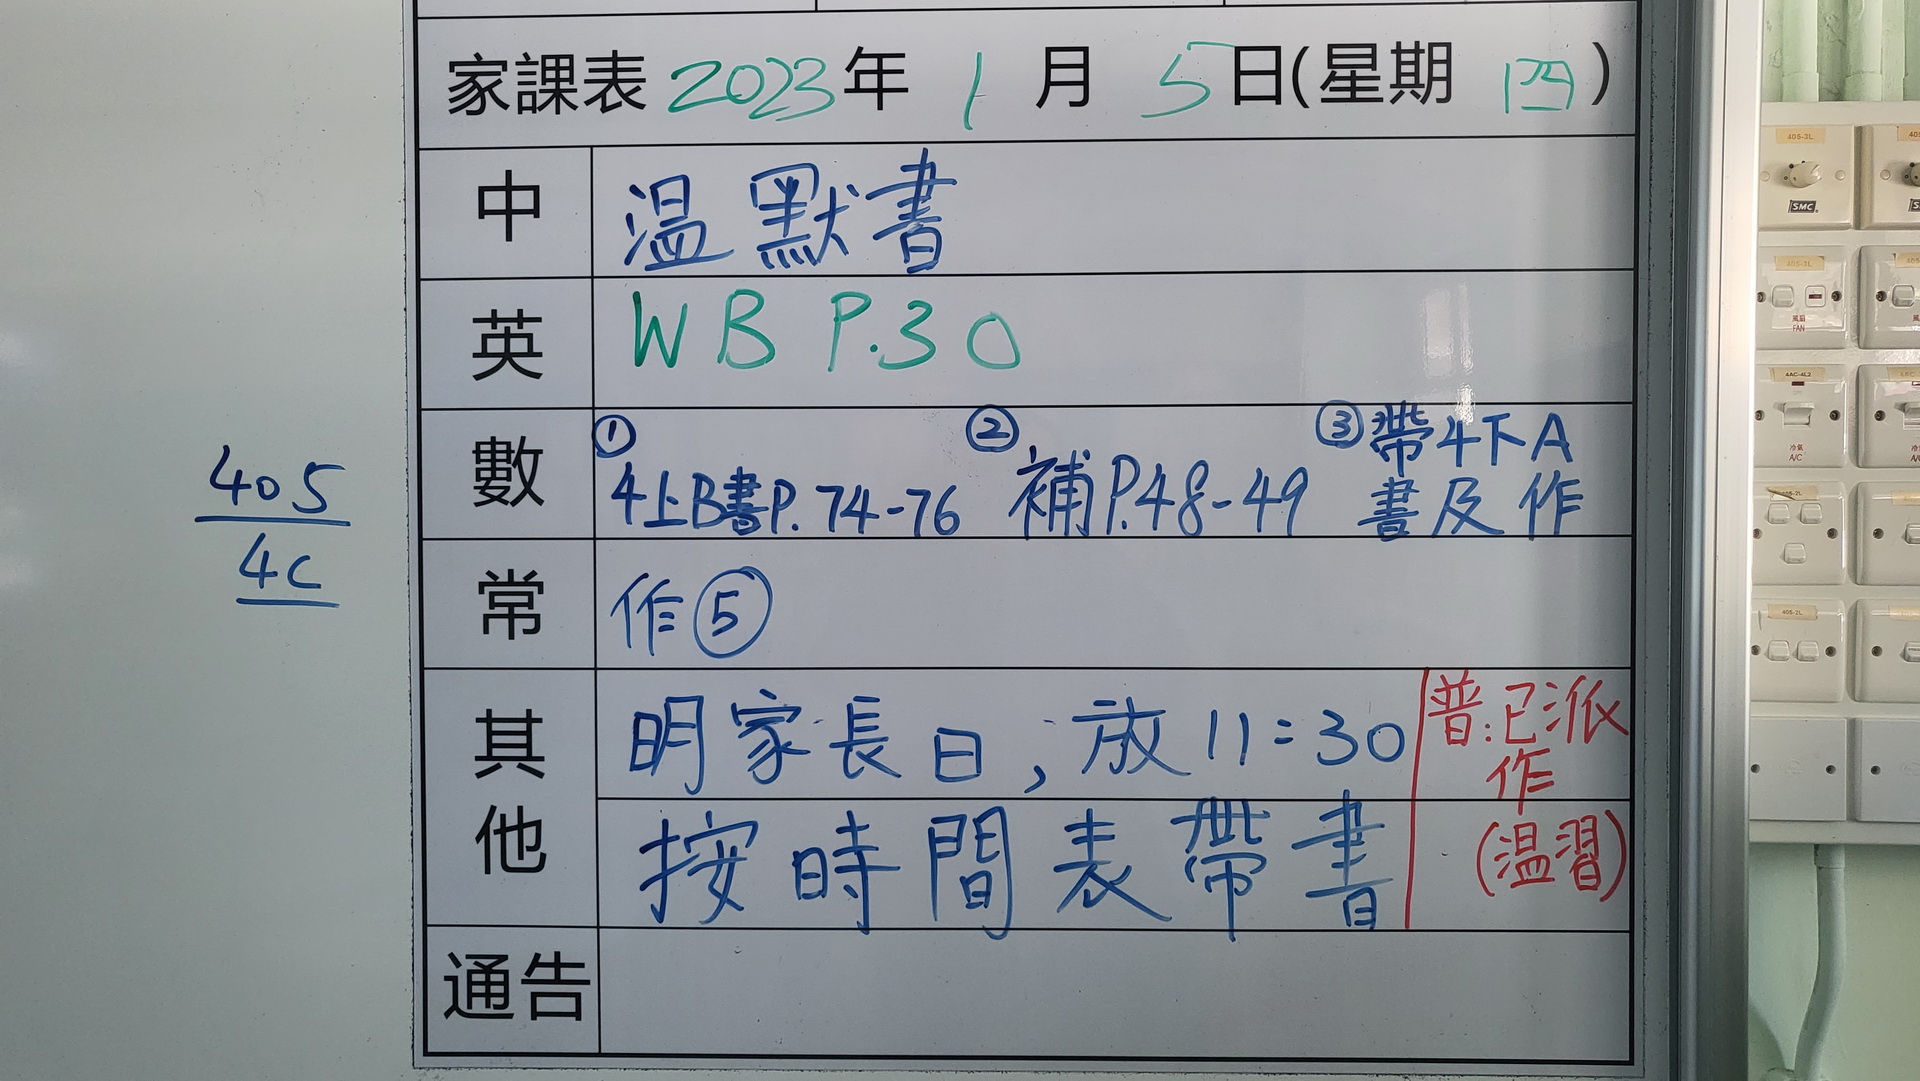 家課表 2023年 1月 5日(星期 四)
中 温默書
英 WB P.30
數 ① 4上B書P.74-76 ② 補P.48-49 ③ 帶4下A書及作
常 作⑤
其他 明家長日，放11:30
按時間表帶書
普:已派
作
(温習)
通告
405
4C
405-3L
SMC
405-3L
風扇
FAN
4AC-4L2
冷氣
A/C
405-2L